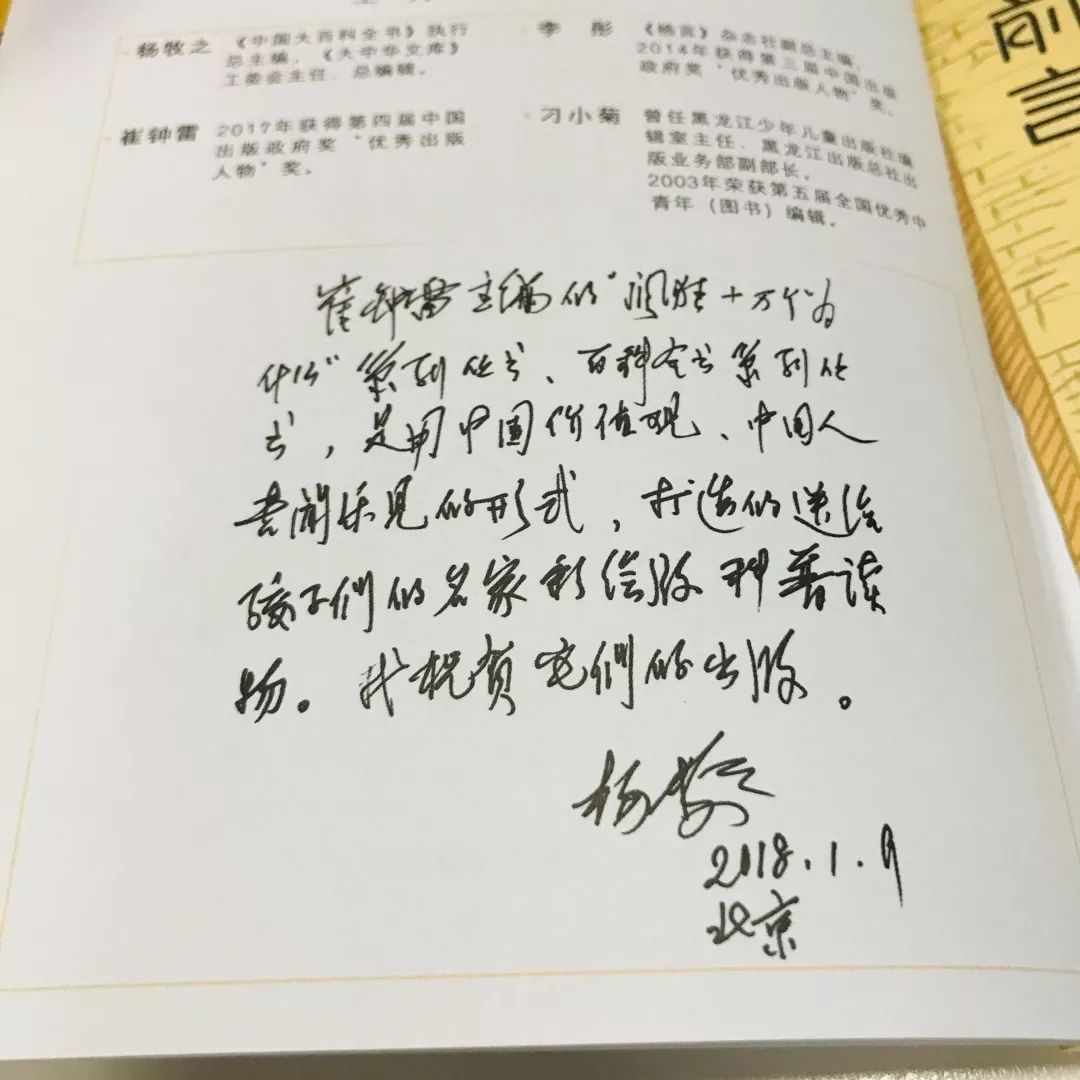 杨牧之 《中国大百科全书》执行
总主编，《大中华文库》
工委会主任、总编辑。
李 彤 《格言》杂志社副总主编，
2014年获得第三届中国出版
政府奖“优秀出版人物”奖。
崔钟雷 2017年获得第四届中国
出版政府奖“优秀出版
人物”奖。
刁小菊 曾任黑龙江少年儿童出版社编
辑室主任、黑龙江出版总社出
版业务部副部长。
2003年荣获第五届全国优秀中
青年（图书）编辑。
崔钟雷主编的“十万个为
什么”系列丛书、百科全书系列丛
书，是用中国价值观、中国人
喜闻乐见的形式，打造的送给
孩子們的名家彩绘版科普读
物。我祝贺它們的出版。
杨牧之
2018.1.9
北京
前言